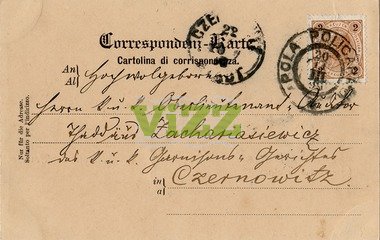 Correspondenz-Karte
Cartolina di corrispondenza.
An
Al
Hochwolgeboren
Herrn K. u. k. Oberlieutenant-Auditor
Thaddäus Zachariasiewicz
des k. u. k. Garnisons-Gerichtes
in
a
Czernowitz
Nur für die Adresse.
Soltanto per l'indirizzo.
2
2
POLA POLICARPO
CZE
22
VIZZ